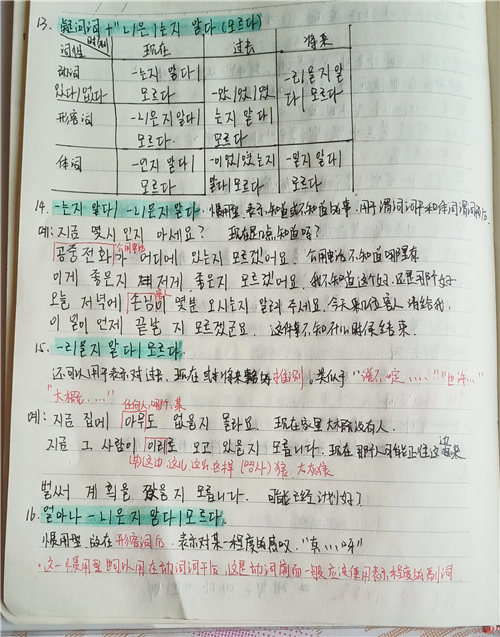 13. 疑问词 + -ㄴ/은/는지 알다 (모르다)
时制
词组 现在 过去 将来
动词 -는지 알다/ -ㄹ/을지 알
있다/없다 모르다 -았/었/였 다/ 모르다
形容词 -ㄴ/은지 알다/ 는지 알다/
모르다 모르다
体词 -인지 알다/ -이었/였는지 -일지 알다/
모르다 알다/모르다 모르다
14. -는지 알다/ -ㄴ/은지 모르다. 惯用型, 表示知道或不知道的事, 用于谓词词干和体词谓词形后
예: 지금 몇시인지 아세요? 现在几点知道吗?
公用电话
공중전화가 어디에 있는지 모르겠어요. 公用电话不知道哪里有
이게 좋은지 저게 좋은지 모르겠어요. 我不知道这个好还是那个好
客人
오늘 저녁에 손님이 몇분 오시는지 알려 주세요. 今天来几位客人请给我.
이 일이 언제 끝날 지 모르겠군요. 这件事不知什么时候结束.
15. -ㄹ/을지 알다/모르다.
还可以用于表示对过去、现在或将来的推测。类似于 "说不定...." "也许..."
"大概...."
任何人, 哪个, 某
예: 지금 집에 아무도 없을지 몰라요. 现在家里大概没有人.
지금 그 사람이 이리로 오고 있을지 모릅니다. 现在那个人可能正往这边来
벌써 계획을 짰을지 모릅니다. 可能已经计划好?
16. 얼마나 -ㄴ/은지 알다/모르다.
惯用型 放在形容词后, 表示对某一程度的感叹. "真...呀"
这一惯用型也可以用在动词词干后, 这是动词前面一般应该使用表示程度的副词